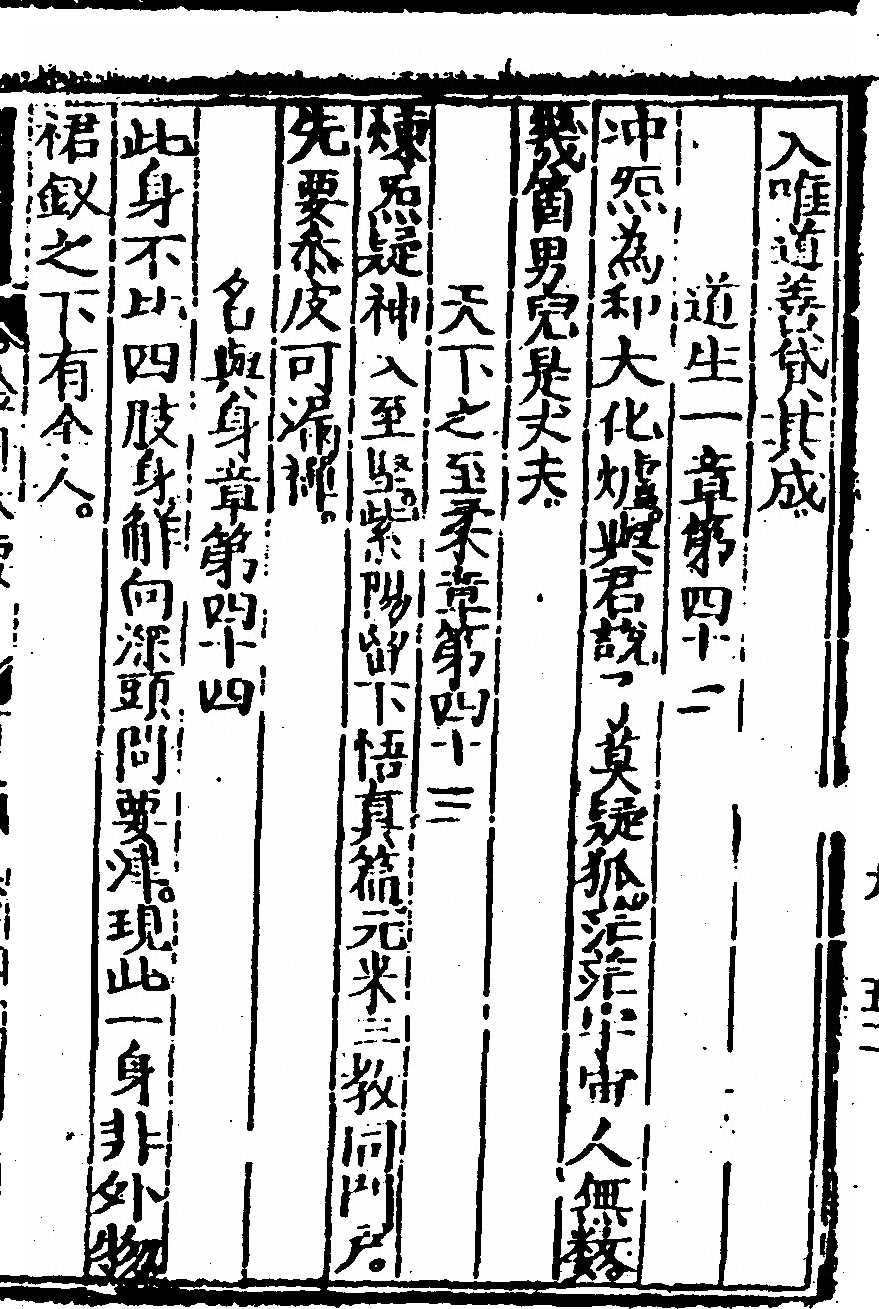 入唯道善貸其成
道生一章第四十二
冲炁為和大化爐與君說了莫疑狐茫茫宇宙人無數
幾箇男兒是丈夫
天下之至柔章第四十三
煉炁凝神入至堅紫陽留下悟真篇元來三教同門戶
先要皮可漏禪
名與身章第四十四
此身不比四肢身觧向深頭問要津現此一身非外物
裙釵之下有全人